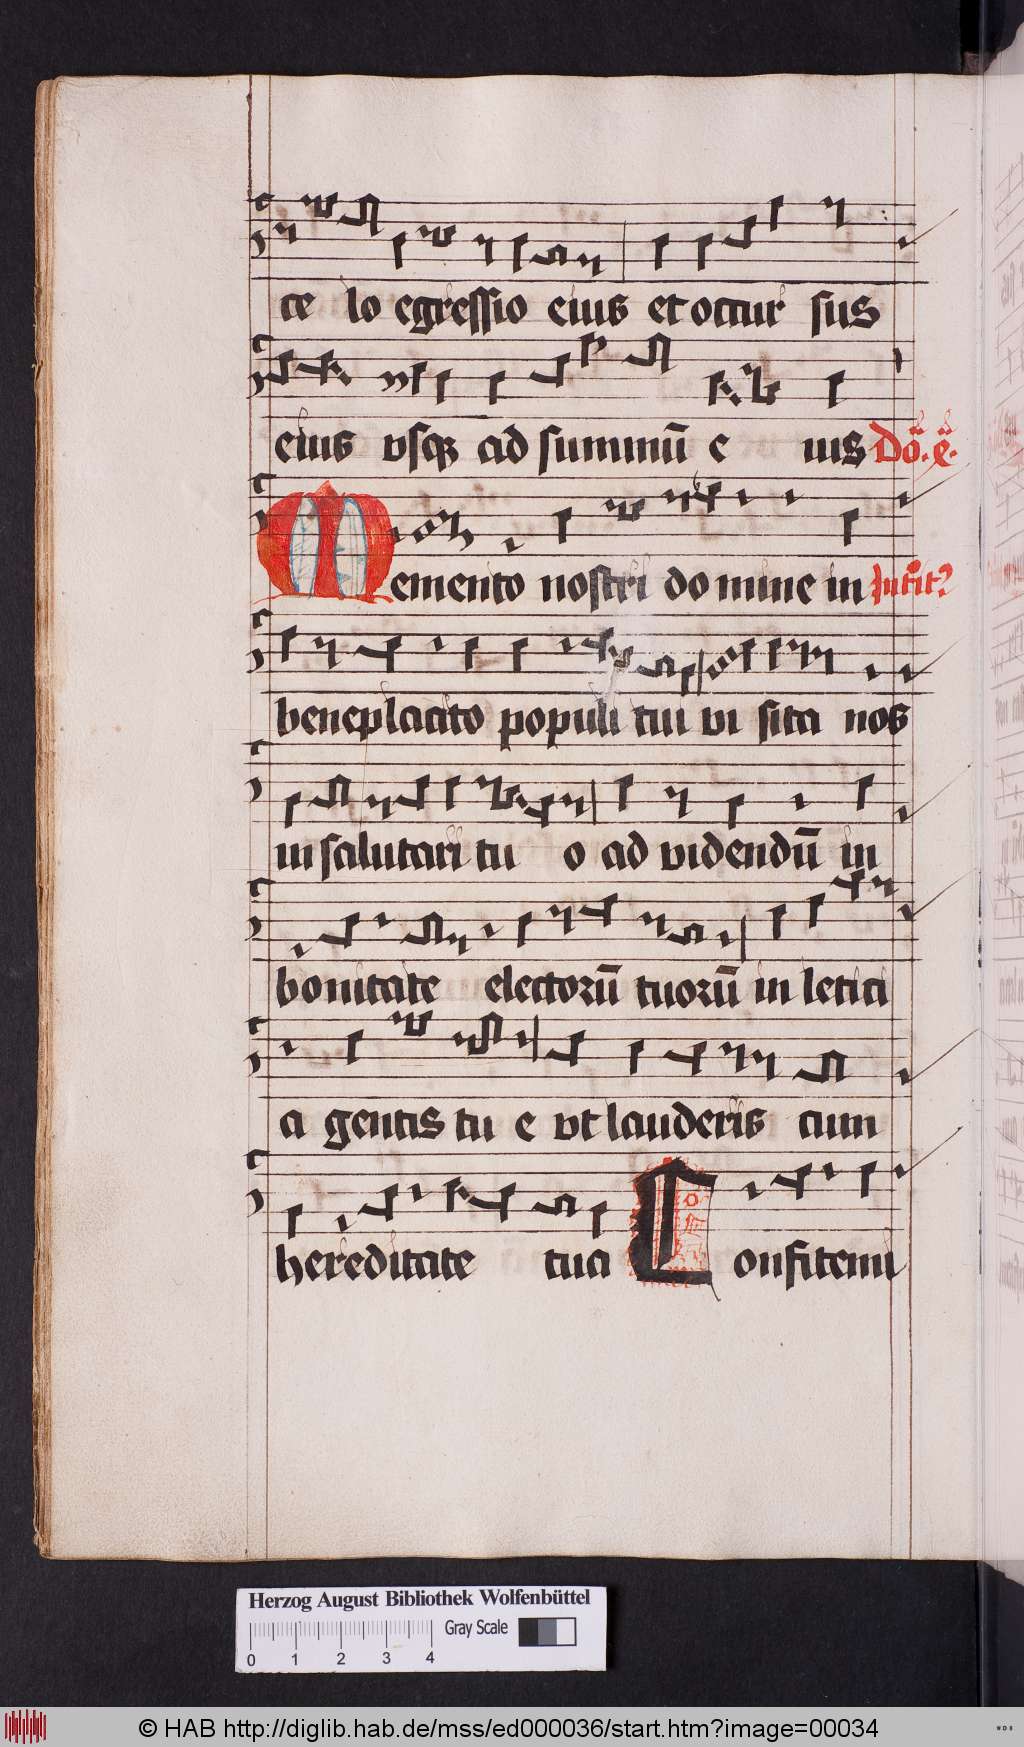 ce lo egressio eius et occur sus
eius vsqꝫ ad summū e ius Do. e.
Memento nostri do mine in
beneplacito populi tui vi sita nos
in salutari tu o ad videndū in
bonitate electorū tuorū in letici
a gentis tu e vt lauderis cum
hereditate tua Confitemi
Herzog August Bibliothek Wolfenbüttel
Gray Scale
0 1 2 3 4
© HAB http://diglib.hab.de/mss/ed000036/start.htm?image=00034